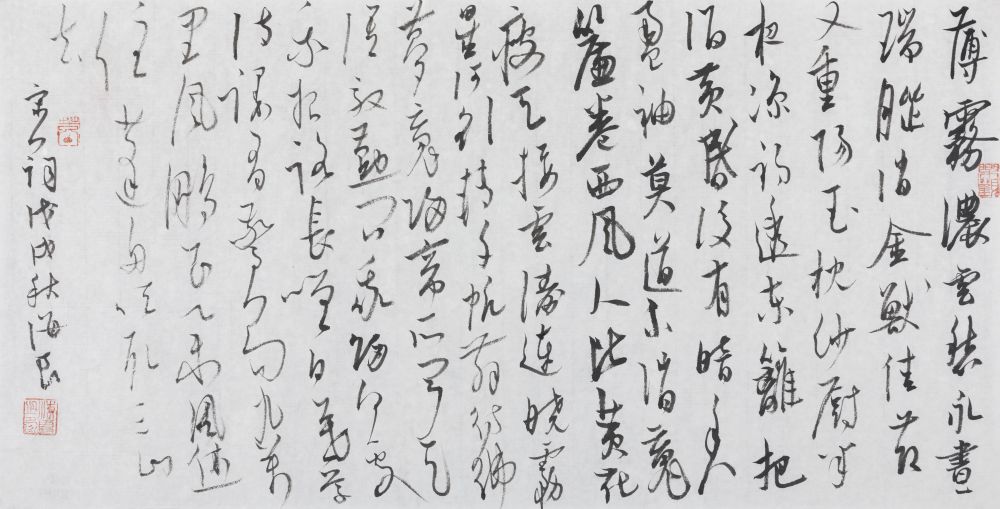 薄霧濃雲愁永晝
瑞腦消金獸佳節
又重陽玉枕紗廚半
夜涼初透東籬把
酒黃昏後有暗香
盈袖莫道不消魂
簾卷西風人比黃花
瘦天接雲濤連曉霧
星河欲轉千帆舞彷彿
夢魂歸帝所聞天
語殷勤問我歸何處
我報路長嗟日暮學
詩謾有驚人句九萬
里風鵬正舉風休
住蓬舟吹取三山
去
宋人詞戊戌秋海